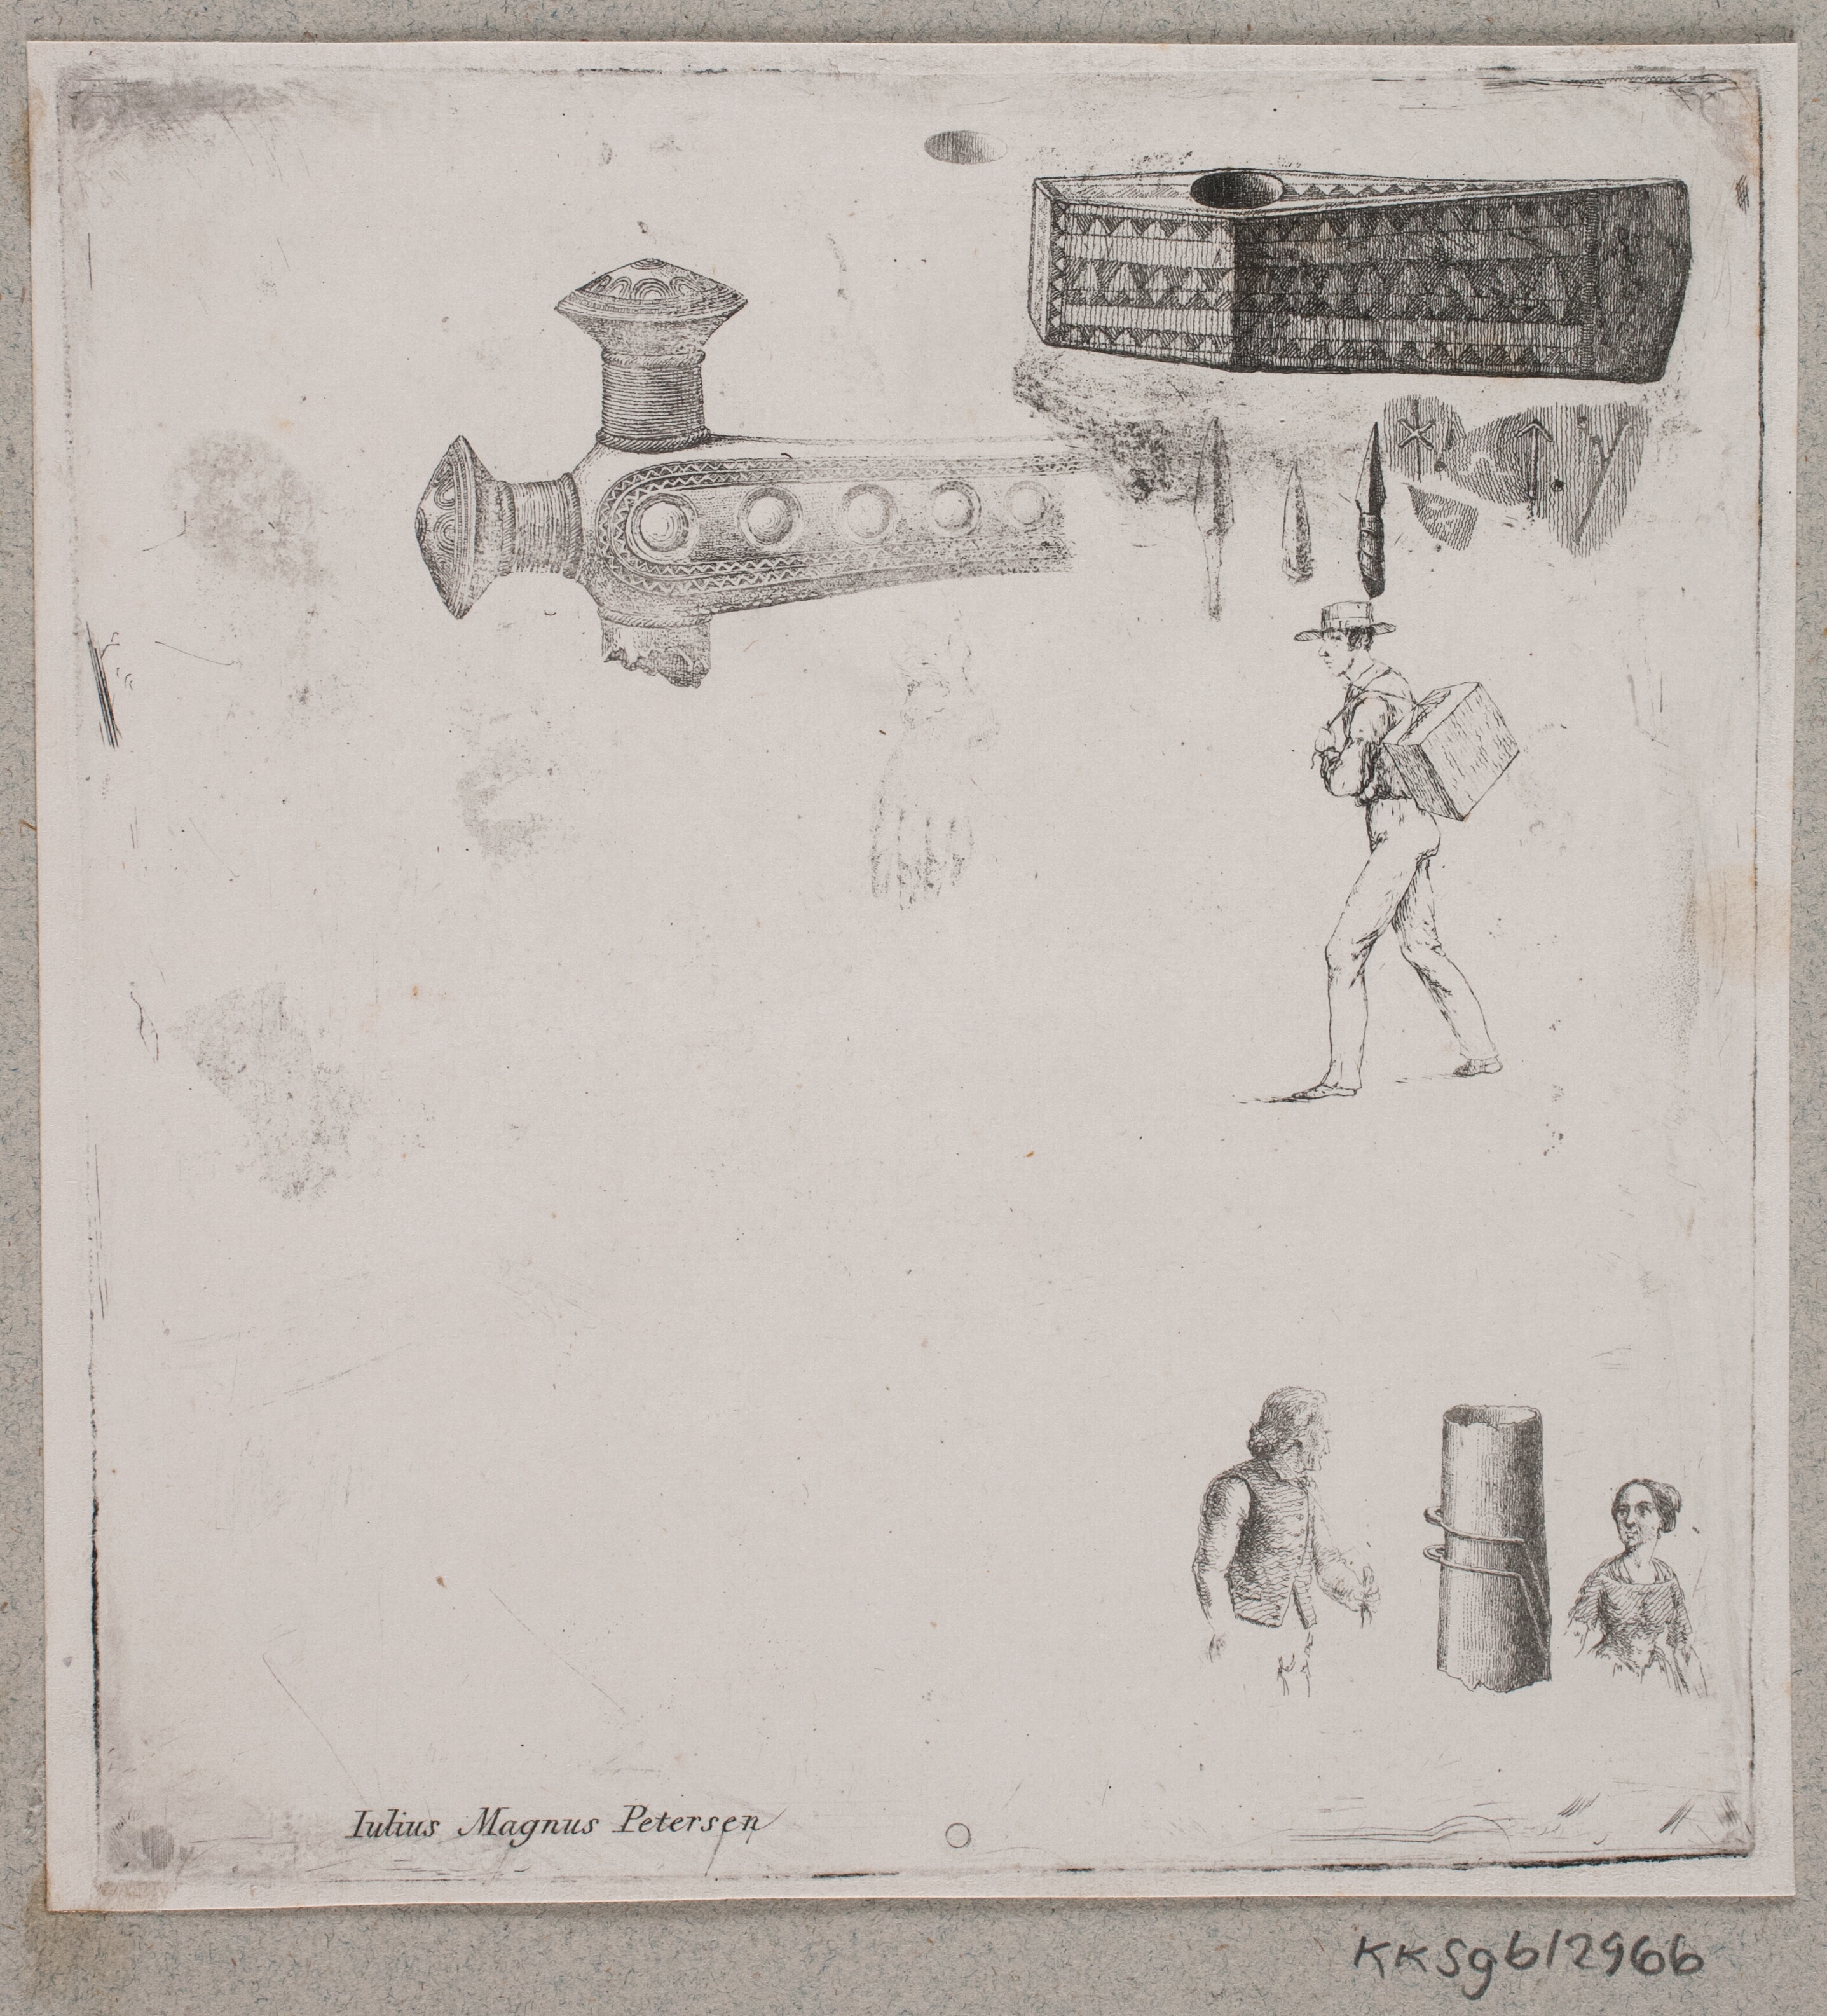 Iulius Magnus Petersen
KKSgb12966